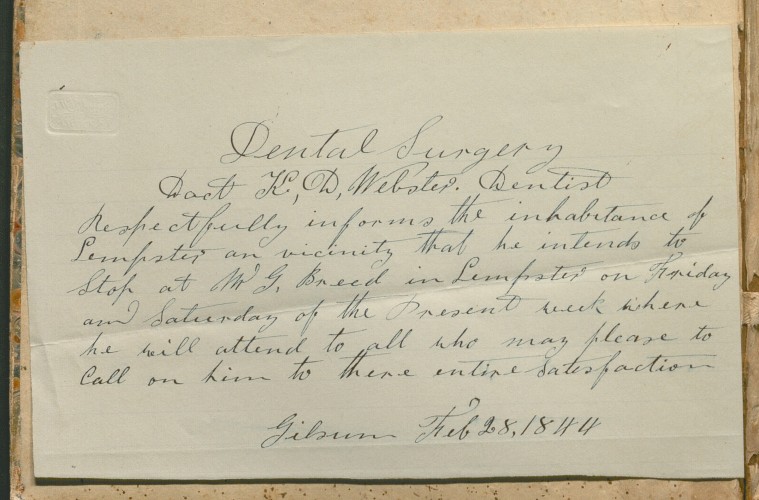 Dental Surgery
Doct K, D, Webster. Dentist
Respectfully informs the inhabitance of
Lempster an vicinity that he intends to
Stop at Mr G, Breed in Lempster on Friday
and Saturday of the Present week where
he will attend to all who may please to
Call on him to there entire satesfaction
Gilsum Feb 28, 1844